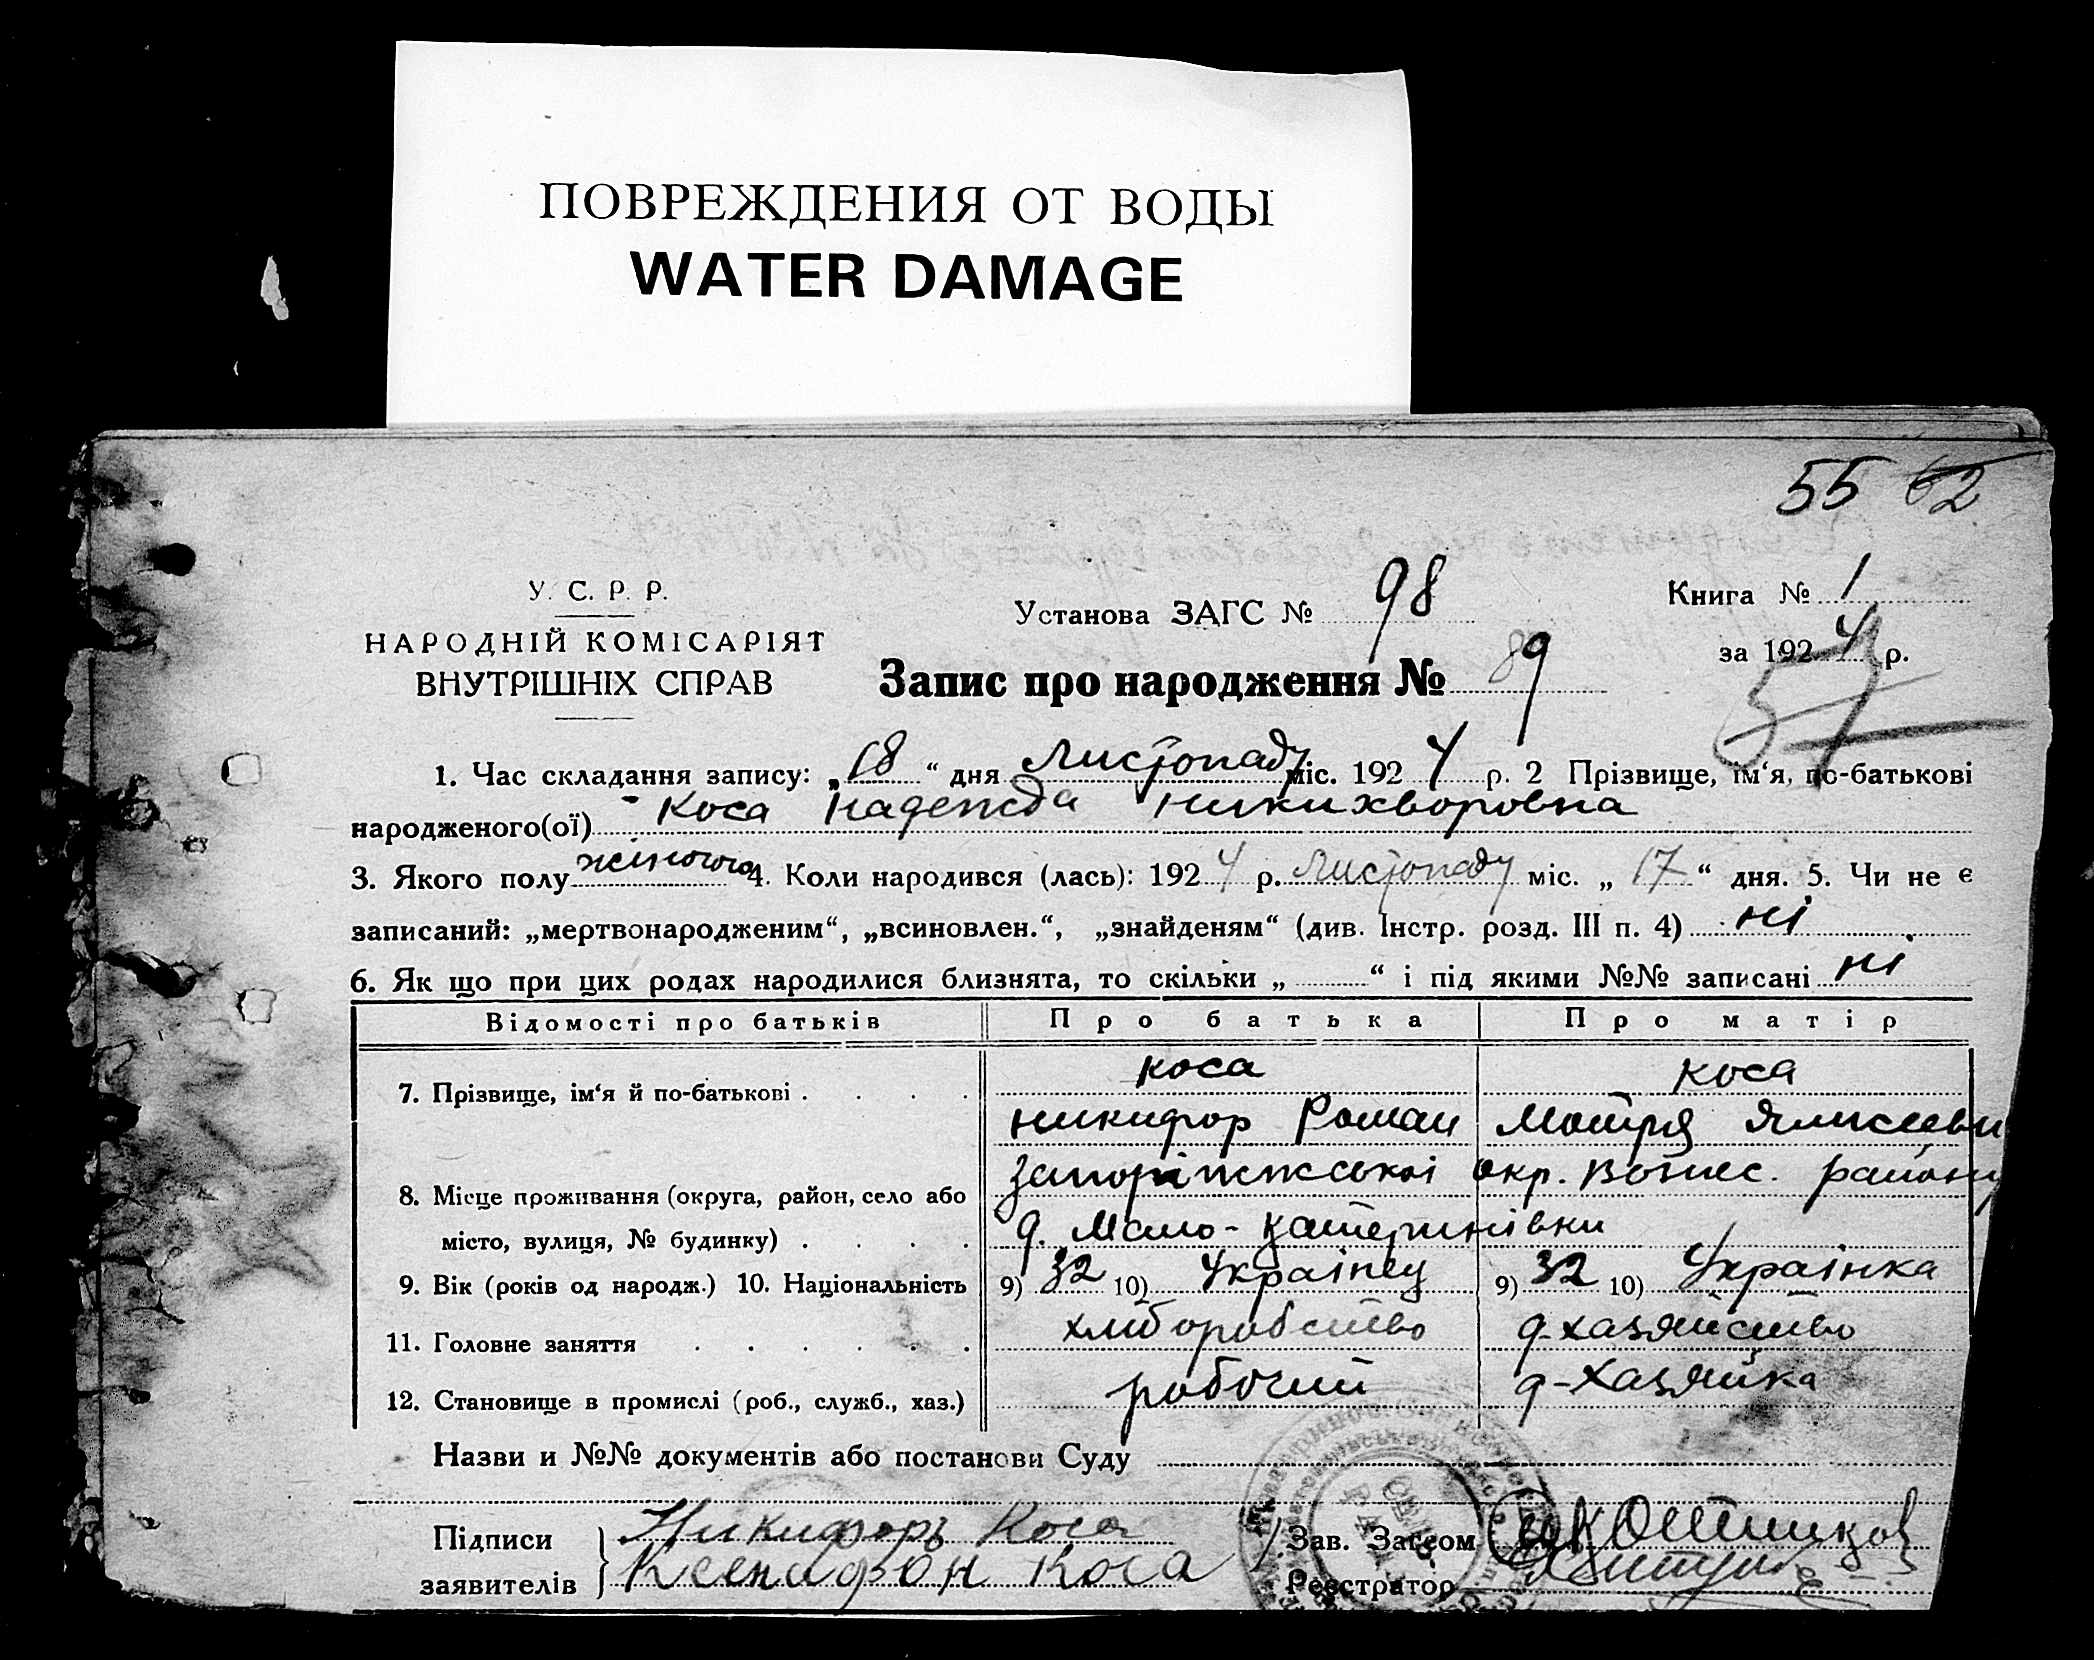 ПОВРЕЖДЕНИЯ ОТ ВОДЫ
WATER DAMAGE
55 62
У. С. Р. Р.
НАРОДНІЙ КОМІСАРІЯТ
ВНУТРІШНІХ СПРАВ
Установа ЗАГС № 98
Книга № 1
за 1924 р.
57
Запис про народження № 89
1. Час складання запису: „18“ дня Листопаду міс. 1924 р. 2 Прізвище, ім‘я, по-батькові
народженого(ої) Коса Надежда Никихворовна
3. Якого полу жіночого 4. Коли народився (лась): 1924 р. Листопаду міс. „17“ дня. 5. Чи не є
записаний: „мертвонародженим“, „всиновлен.“, „знайденям“ (див. Інстр. розд. III п. 4) ні
6. Як що при цих родах народилися близнята, то скільки „ “ і під якими №№ записані ні
Відомості про батьків Про батька Про матір
7. Прізвище, ім‘я й по-батькові . . . . Коса Коса
Никифор Роман Мотря
8. Місце проживання (округа, район, село або Запоріжжської окр. Вознес. району
місто, вулиця, № будинку) . . . . д. Мало-Катеринівки
9. Вік (років од народж.) 10. Національність 9) 32 10) Українец 9) 32 10) Українка
11. Головне заняття . . . . . . хліборобство д-хазяйство
12. Становище в промислі (роб., служб., хаз.) робочий д-хазяйка
Назви и №№ документів або постанови Суду
Підписи Никифоръ Коса Зав. Загсом
заявителів Ксенифон Коса Реєстратор